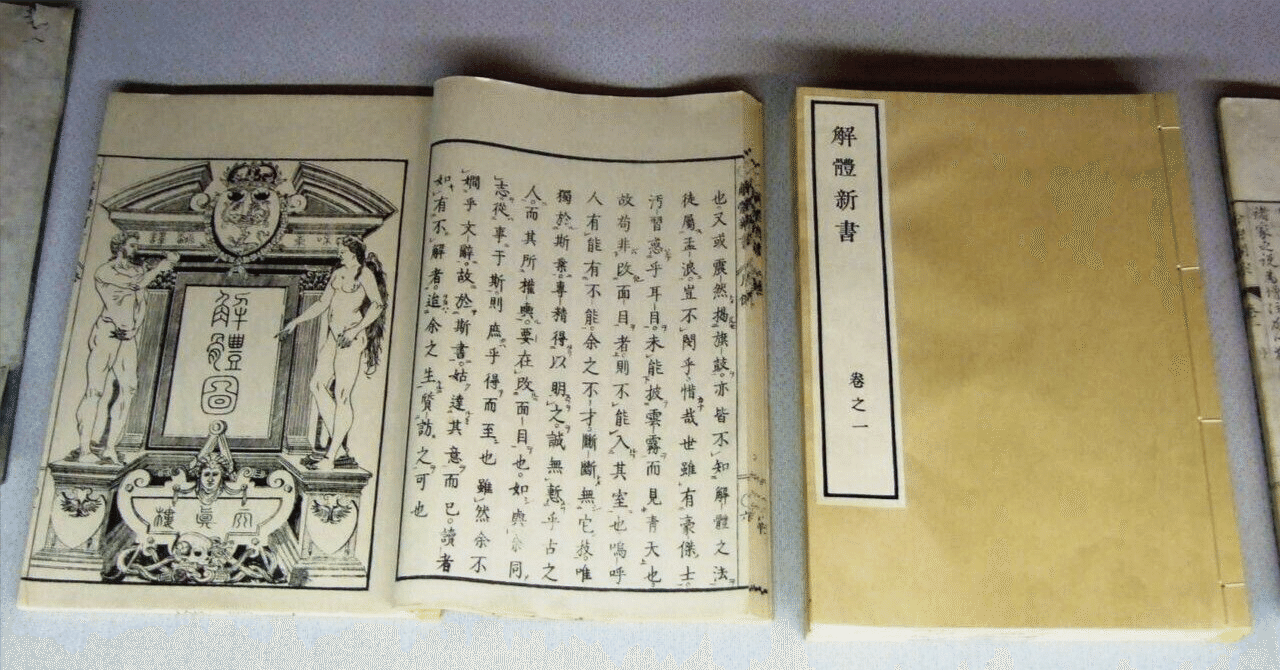 解體新書
卷之一
也又或震然揭旗鼓。亦皆不知解體之法。
徒屬孟浪。豈不閔乎。惜哉世雖有豪傑士。
汚習惑乎耳目。未能披雲霧而見青天也。
故苟非改面目者。則不能入其室也。嗚呼
人有能有不能。余之不才。斷斷無它技。唯
獨於斯業。專精得以明之。誠無慙乎古之
人。而其所權輿。要在改面目也。如與余同
志。從事于斯。則庶乎得而至也。雖然余不
嫺乎文辭。故於斯書。姑達其意而已。讀者
如有不解者。追余之生。贄訪之可也
解體圖
天眞樓
諸家之説